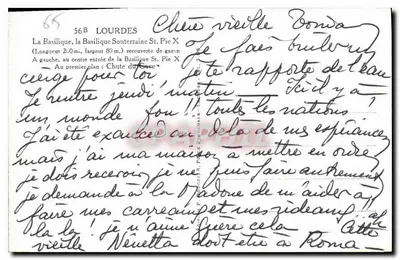 65
56B LOURDES
La Basilique, la Basilique Souterraine St. Pie X
(Longueur 200 m., largeur 80 m.) recouverte de gazon
A gauche, au centre entrée de la Basilique St. Pie X
— Au premier plan : Chute
Chère vieille
Je fais brûler un
cierge pour toi je te rapporte de l'eau
Je rentre jeudi matin Ici il y a
un monde fou!! toutes les nations!
J'ai été exaucée au delà de mes espérances
mais j'ai ma maison à mettre en ordre
je dois recevoir je ne puis faire autrement
je demande à la Madone de m'aider à
faire mes carreaux et mes rideaux
la la! je n'aime guère cela Cette
vieille Nénetta doit être à Roma